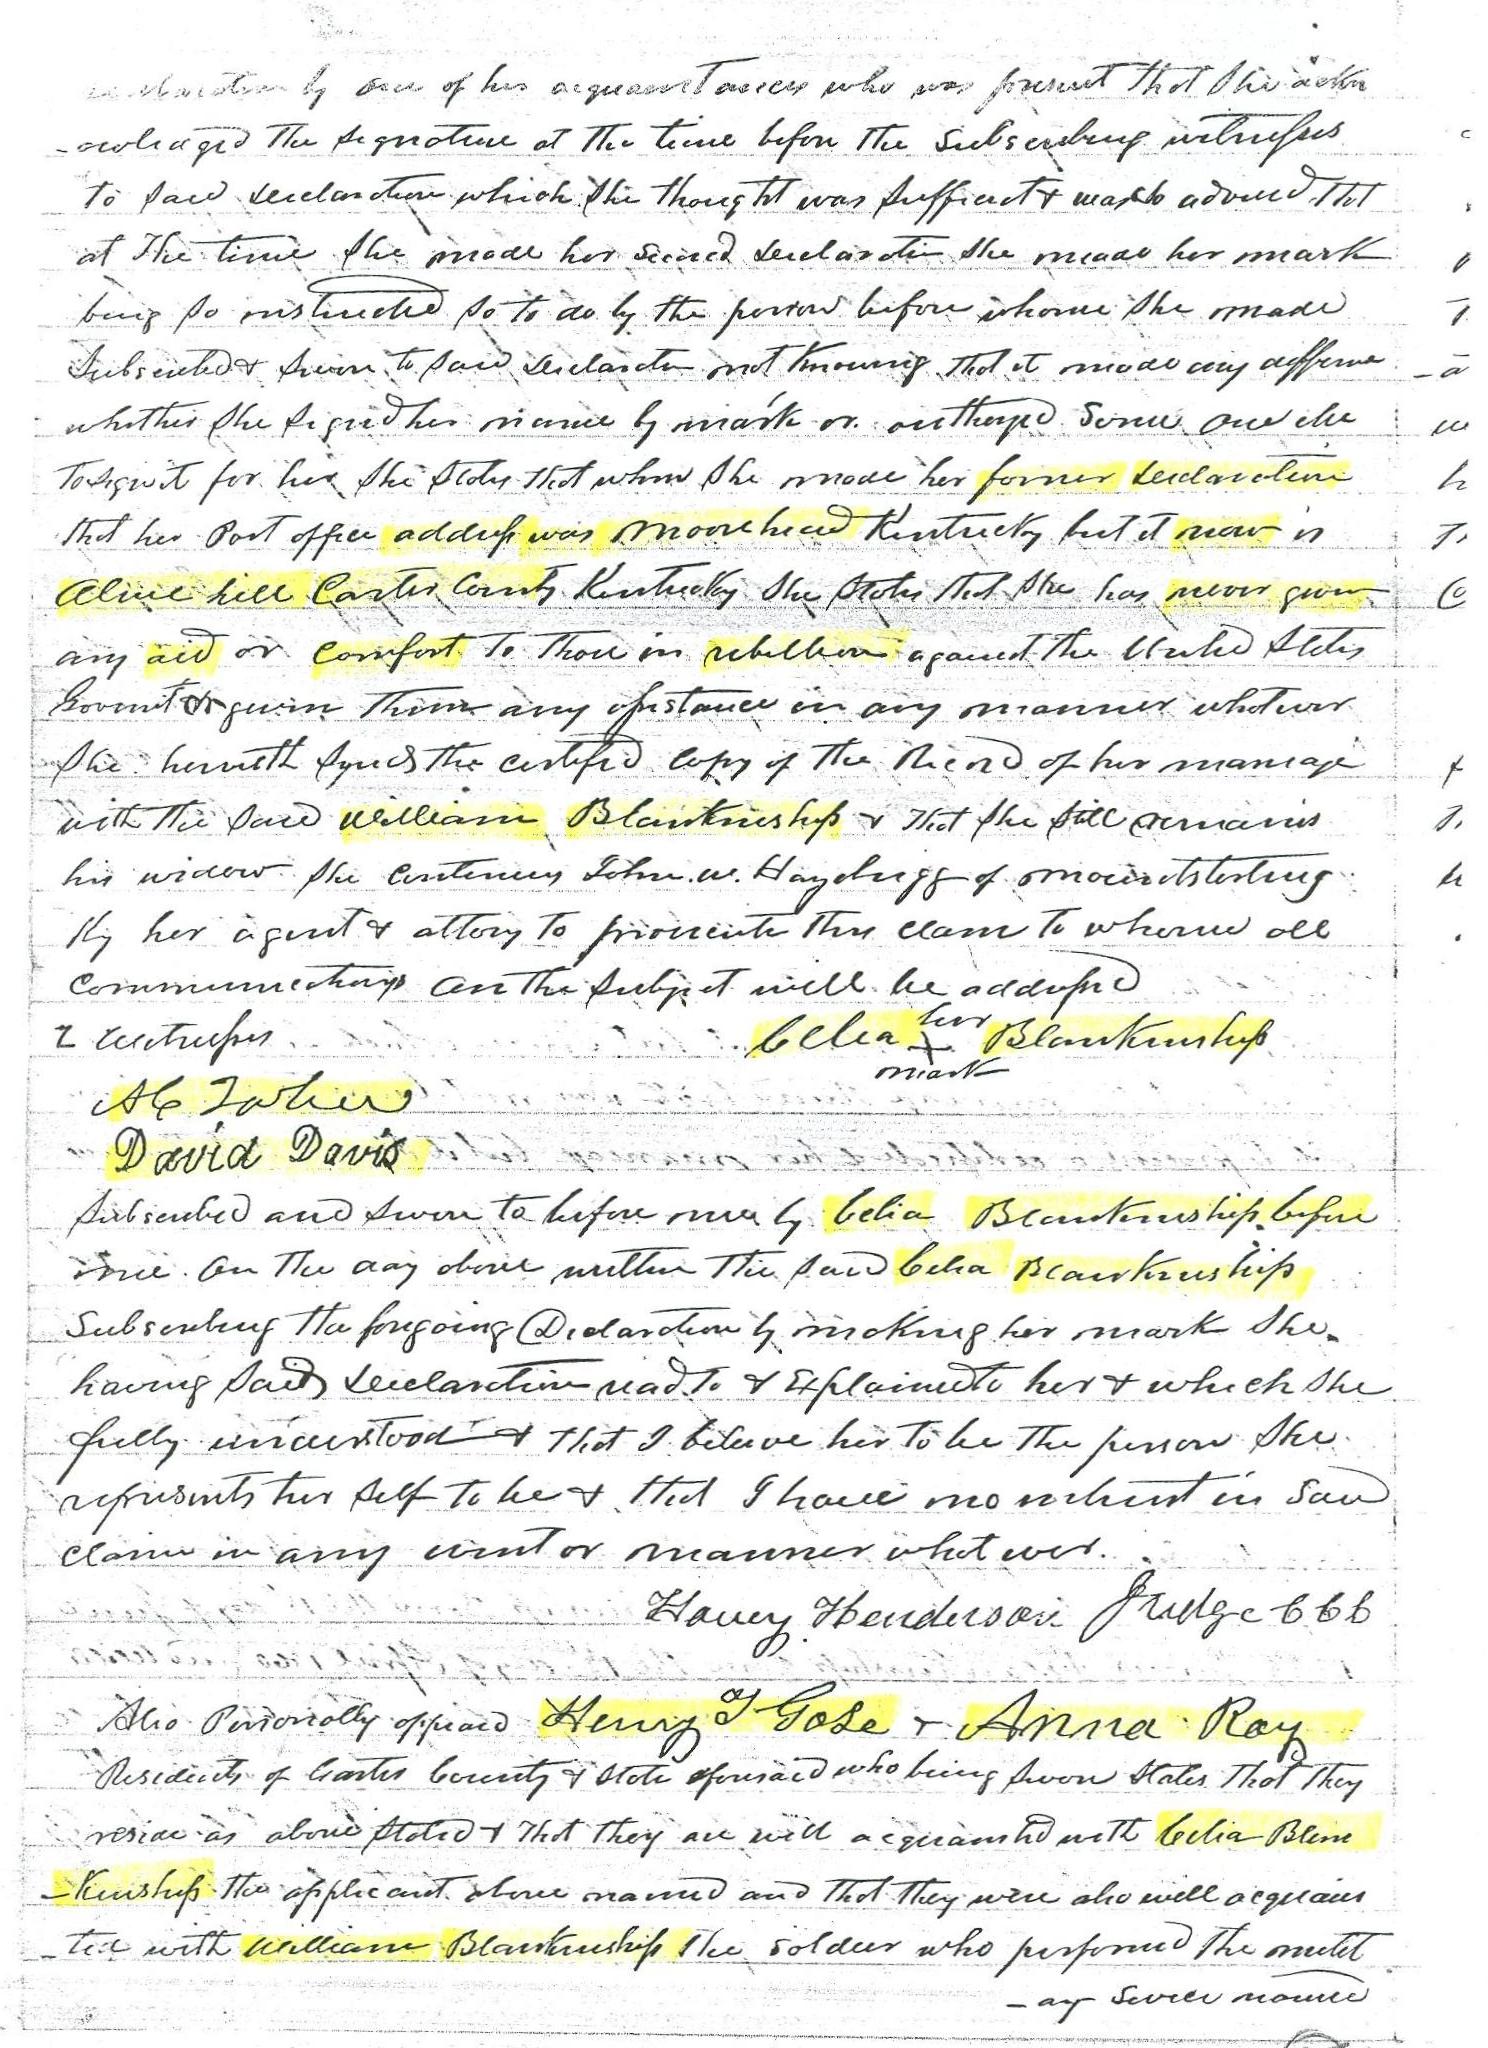 by one of her acquaintances who was present that she ackn
-owledged the signature at the time before the subscribing witnesses
to said declaration which she thought was sufficient & was so advised that
at the time she made her second declaration she made her mark
being so instructed so to do by the person before whome she made
Subscribed & sworn to said declaration not knowing that it made any differance
whether she signed her name by mark or authorized some one else
to sign it for her she states that when she made her former declaration
that her Post office address was Moorehead Kentucky but it now is
Olive hill Carter County Kentucky she states that she has never given
any aid or comfort to those in rebellion against the United States
Goverment or given them any assistance in any manner whatever
she herewith the certified copy of the Record of her marriage
with the said William Blankinship & that she still remains
his widow she continues John W. Hazelrigg of mountsterling
Ky her agent & attorny to prosecute this claim to whome all
communications on the subject will be addressed
2 witnesses Celia her X mark Blankinship
David Davis
Subscribed and sworn to before me by Celia Blankinship before
me on the day above written the said Celia Blankinship
Subscribing the foregoing Declaration by making her mark she
having said declaration read to & Explained to her & which she
fully understood & that I beleave her to be the person she
represents her self to be & that I have no interest in said
claim in any event or manner whatever.
Harvey Henderson Judge C C C
Also Personally appeared Henry T Gose & Anna Ray
Residents of Carter County & State aforesaid who being sworn states that they
reside as above stated & that they are well acquainted with Celia Blan
-kinship the applicant above named and that they were also well acquain
-ted with William Blankinship the soldier who performed the milit
-ary named